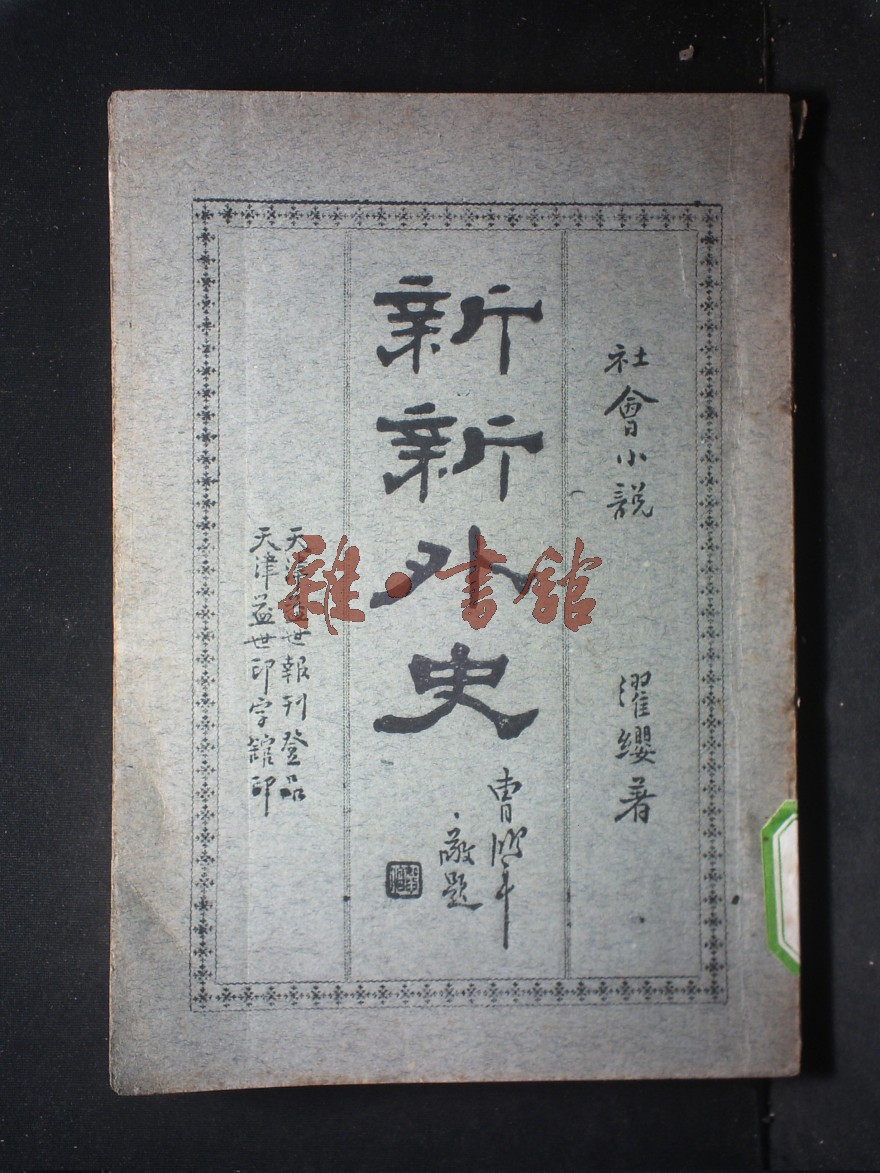 社會小説
濯纓著
新新外史
曹鴻年
敬題
天津益世報刊登品
天津益世印字館印
雜·書館